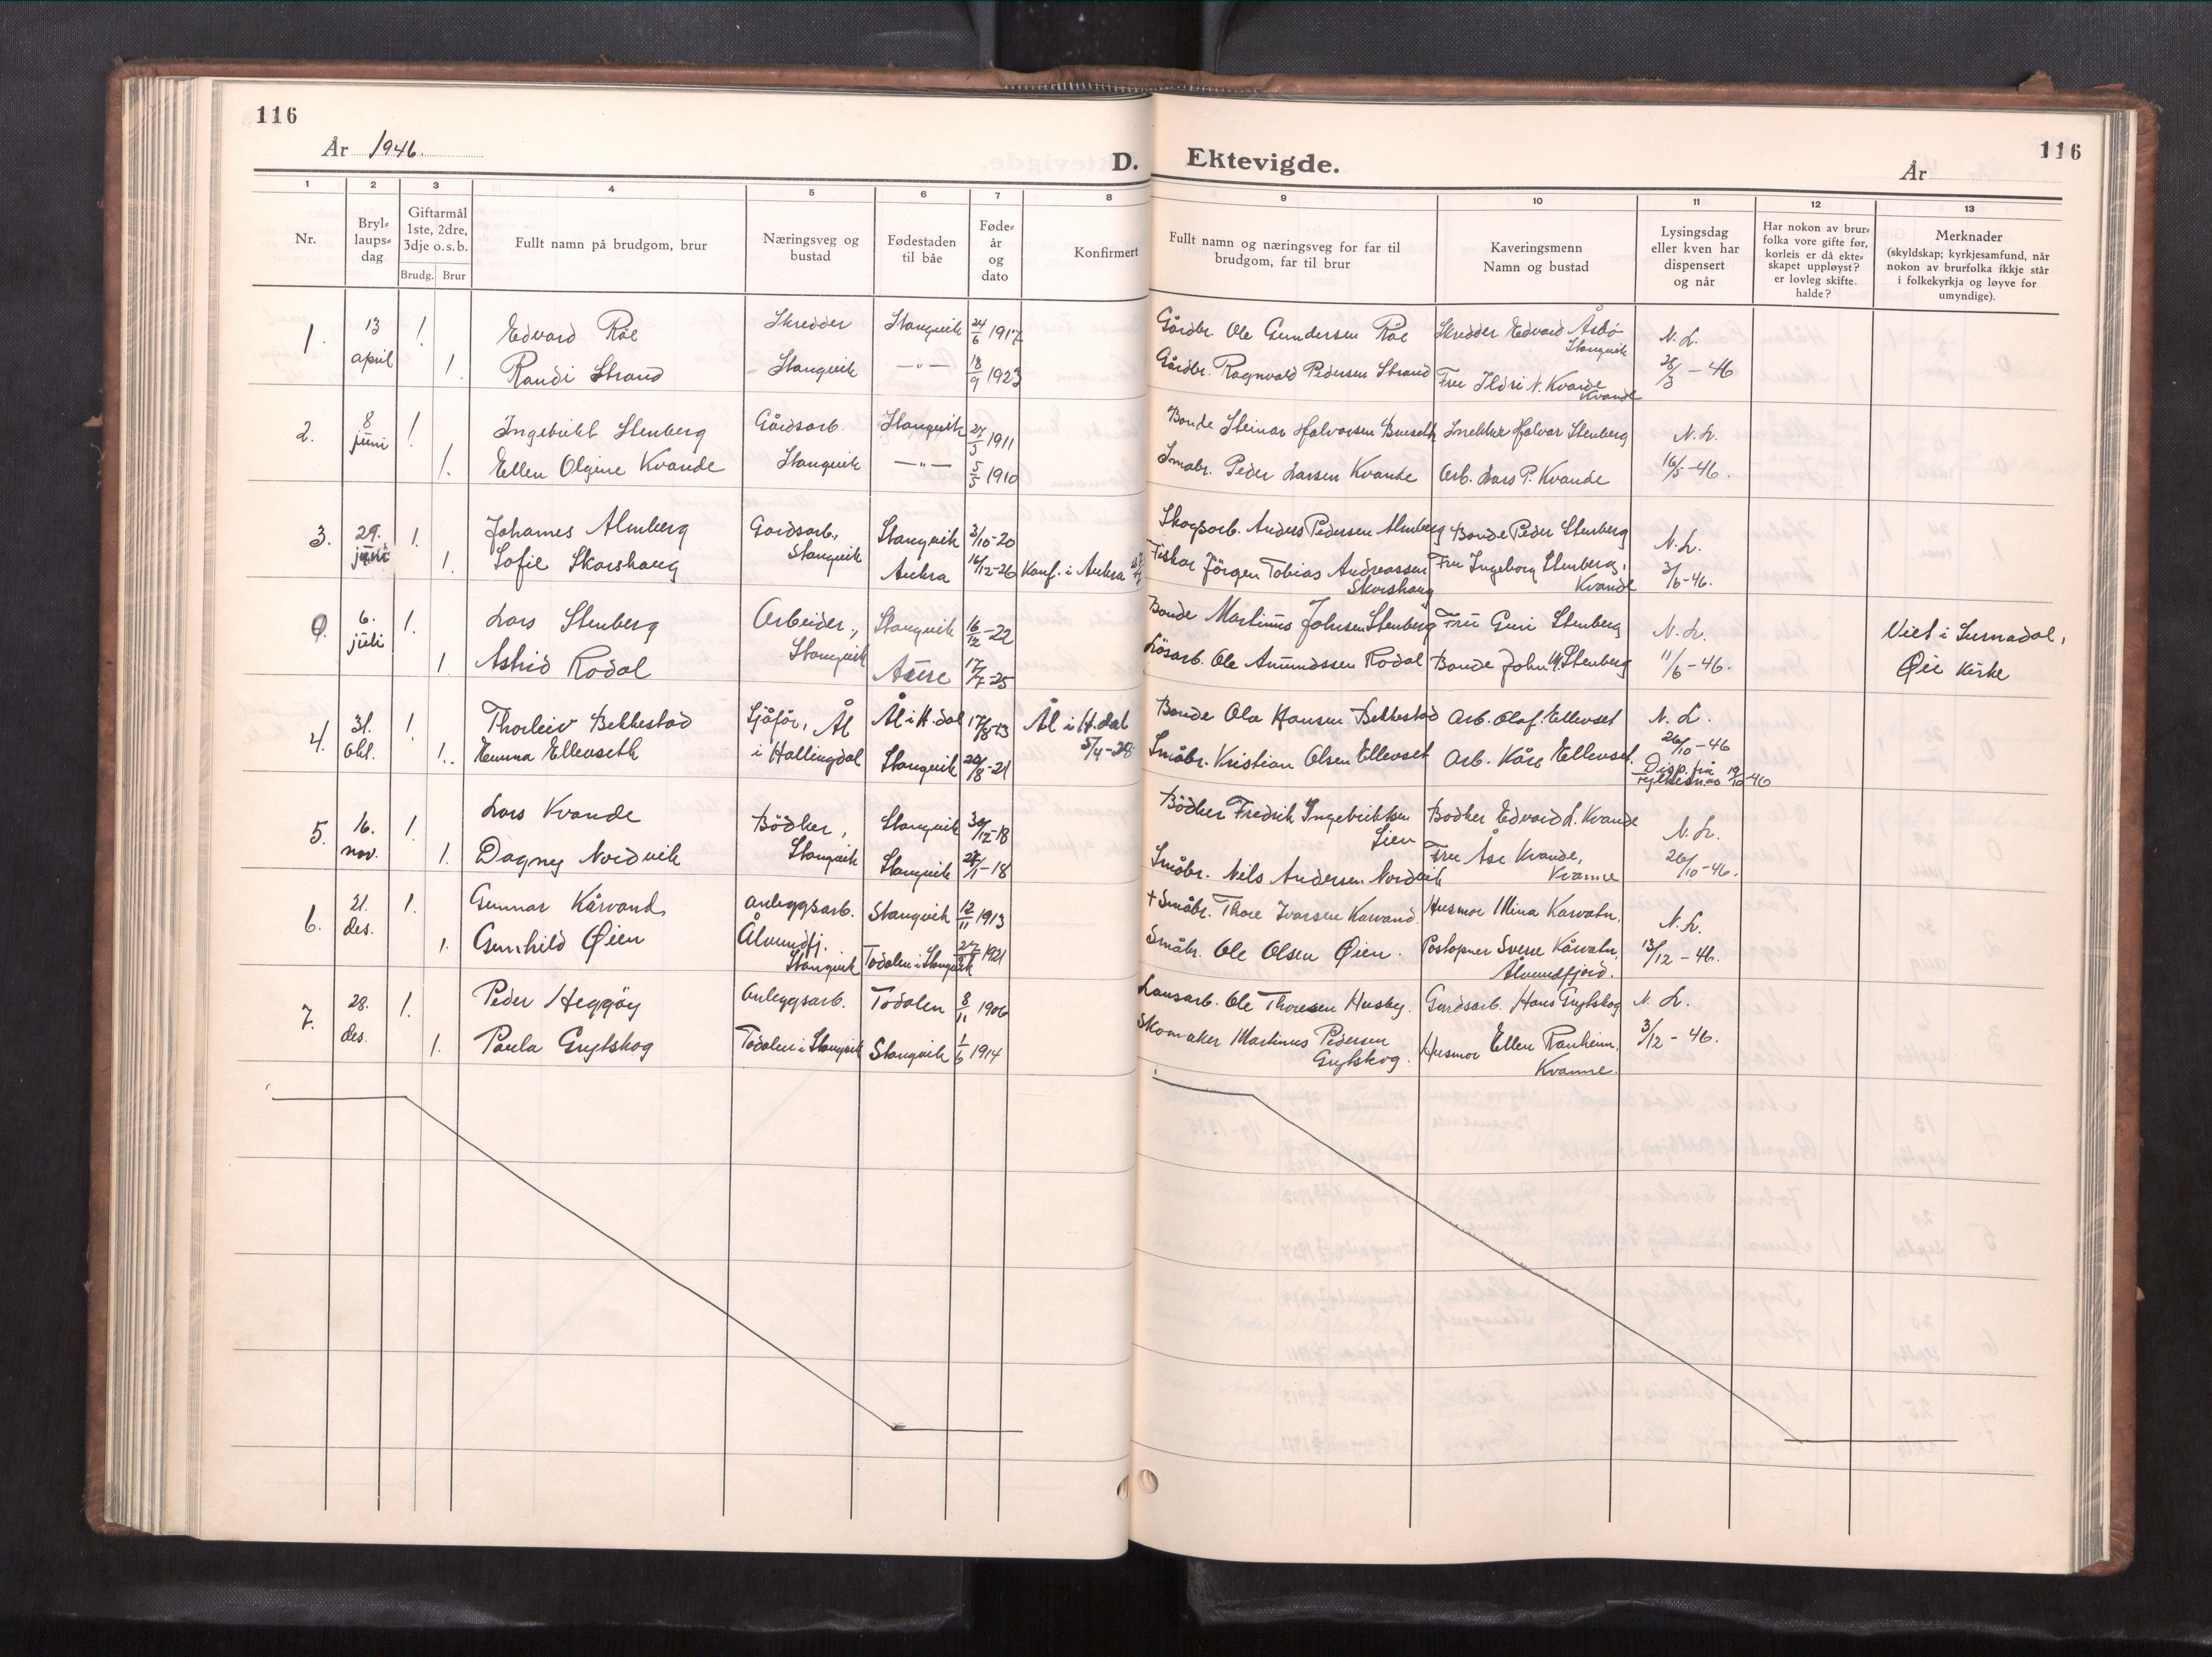 116
År 1946.
D. Ektevigde.
116
År
1 2 3 4 5 6 7 8 9 10 11 12 13
Nr.
Bryl-
laups-
dag
Giftarmål
1ste, 2dre,
3dje o.s.b.
Brudg. Brur
Fullt namn på brudgom, brur
Næringsveg og
bustad
Fødestaden
til båe
Føde-
år
og
dato
Konfirmert
Fullt namn og næringsveg for far til
brudgom, far til brur
Kaveringsmenn
Namn og bustad
Lysingsdag
eller kven har
dispensert
og når
Har nokon av brur-
folka vore gifte før,
korleis er då ekte-
skapet uppløyst?
er lovleg skifte
halde?
Merknader
(skyldskap; kyrkjesamfund, når
nokon av brurfolka ikkje står
i folkekyrkja og løyve for
umyndige).
1. 13 1 Edvard Røe Skredder Stangvik 24/6 1917 Gårdbr. Ole Gundersen Røe Skredder Edvard Åsbø Stangvik N. L.
april 1. Randi Strand Stangvik —"— 18/9 1923 Gårdbr. Ragnvald Pedersen Strand Fru Ildri N. Kvande Kvande 28/3 – 46
2. 8 1 Ingebrikt Stenberg Gårdsarb. Stangvik 1911 Bonde Steinar Halvorsen Snekker Halvar Stenberg N. L.
juni 1. Ellen Olgine Kvande Stangvik —"— 5/5 1910 Småbr. Peder Larsen Kvande Arb. Lars P. Kvande 16/5 – 46.
3. 29. 1. Johannes Almberg Gardsarb., Stangvik 3/10-20 Skogsarb. Anders Pedersen Almberg Bonde Peder Stenberg N. L.
juni 1. Sofie Skarshaug Stangvik Aukra 16/12-26 Konf. i Aukra Fiskar Jörgen Tobias Andreassen Skarshaug Fru Ingeborg Stenberg, Kvande 3/6 – 46.
0. 6. 1. Lars Stenberg Arbeider., Stangvik 16/12 – 22 Bonde Martinus Johnsen Stenberg Fru Guri Stenberg N. L. Viet i Surnadal,
juli 1 Astrid Rodal Stangvik Aure 17/7 – 25 Lösarb. Ole Amundssen Rodal Bonde John M. Stenberg 11/6 – 46. Øie Kirke
4. 31. 1. Thorleiv Bekkestad Sjåför, Ål Ål i H.dal 17/8-13 Ål i H.dal 5/4 – 28 Bonde Ola Hansen Bekkestad Arb. Olaf Ellevset N. L.
Okt. 1. Emma Ellevseth i Hallingdal Stangvik 20/8-21 Småbr. Kristian Olsen Ellevset Arb. Kåre Ellevset. 26/10 – 46
Disp. frå fylkesmann 19/10-46
5. 16. 1. Lars Kvande Bödker, Stangvik 30/12-18 Bödker Fredrik Ingebriktsen Lien Bodker Edvard L. Kvande N. L.
nov. 1. Dagny Nordvik Stangvik Stangvik 27/1 – 18 Småbr. Nils Andersen Nordvik Fru Åse Kvande, Kvanne 26/10 – 46.
6. 21. 1. Gunnar Kårvand, anleggsarb. Stangvik 12/11 1913 + Småbr. Thore Ivarsen Karvand. Husmor Mina Karvatn. N. L.
des. 1. Gunhild Øien Ålvundfj. Stangvik Todalen i Stangvik 1921 Småbr. Ole Olsen Øien. Postopner Sverre Kårvatn, Ålvundfjord. 13/12 – 46.
7. 28. 1. Peder Heggöy Anleggsarb. Todalen 8/11 1906 Lausarb. Ole Thoresen Husby. Gardsarb. Hans Grytskog N. L.
des. 1. Paula Grytskog Todalen i Stangvik Stangvik 1/6 1914 Skomaker Martinus Pedersen Grytskog. Husmor Ellen Ranheim, Kvanne. 3/12 – 46.